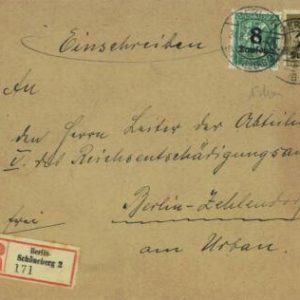 Einschreiben
8
An
den Herrn Leiter der Abteilu
V. des Reichsentschädigungsam
Berlin-Zehlendorf
frei
am Urban.
Berlin-
Schöneberg 2
171